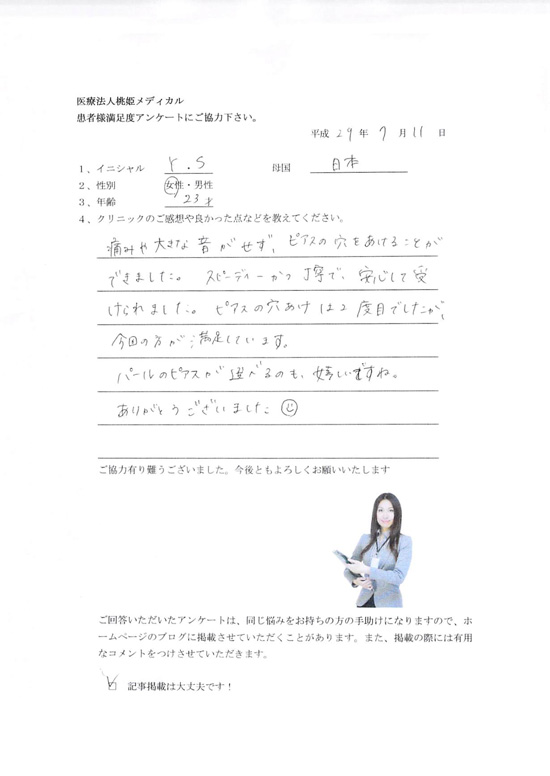 医療法人桃姫メディカル
患者様満足度アンケートにご協力下さい。
平成 29 年 7 月 11 日
1、イニシャル Y.S 母国 日本
2、性別 女性・男性
3、年齢 23才
4、クリニックのご感想や良かった点などを教えてください。
痛みや大きな音がせず、ピアスの穴をあけることが
できました。スピーディーかつ丁寧で、安心して受
けられました。ピアスの穴あけは2度目でしたが、
今回の方が満足しています。
パールのピアスが選べるのも、嬉しいですね。
ありがとうございました
ご協力有り難うございました。今後ともよろしくお願いいたします
ご回答いただいたアンケートは、同じ悩みをお持ちの方の手助けになりますので、ホ
ームページのブログに掲載させていただくことがあります。また、掲載の際には有用
なコメントをつけさせていただきます。
記事掲載は大丈夫です！